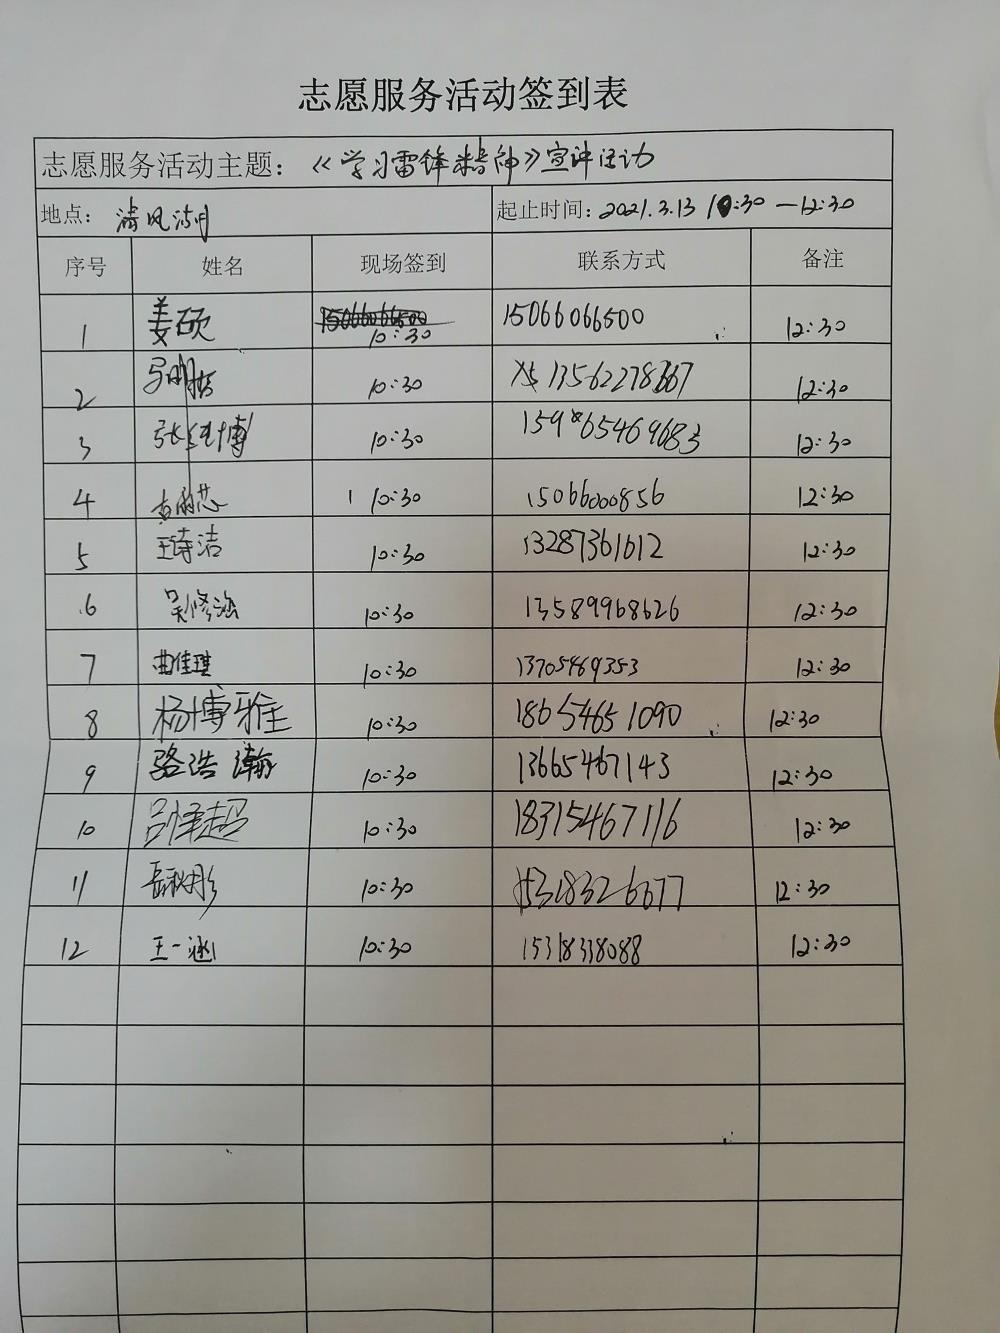 志愿服务活动签到表
志愿服务活动主题：《学习雷锋精神》宣讲活动
地点：清风湖 起止时间：2021.3.13 10:30—12:30
序号 姓名 现场签到 联系方式 备注
1 姜硕 15066066500 10:30 15066066500 12:30
2 10:30 13562278367 12:30
3 张钰博 10:30 15965469683 12:30
4 10:30 15066000856 12:30
5 王诗洁 10:30 13287361612 12:30
6 吴修涵 10:30 13589968626 12:30
7 曲佳琪 10:30 13705469353 12:30
8 杨博雅 10:30 18654651090 12:30
9 骆浩瀚 10:30 13665467143 12:30
10 吕泽超 10:30 18315467116 12:30
11 岳秋彤 10:30 15318326677 12:30
12 王一涵 10:30 15318338088 12:30